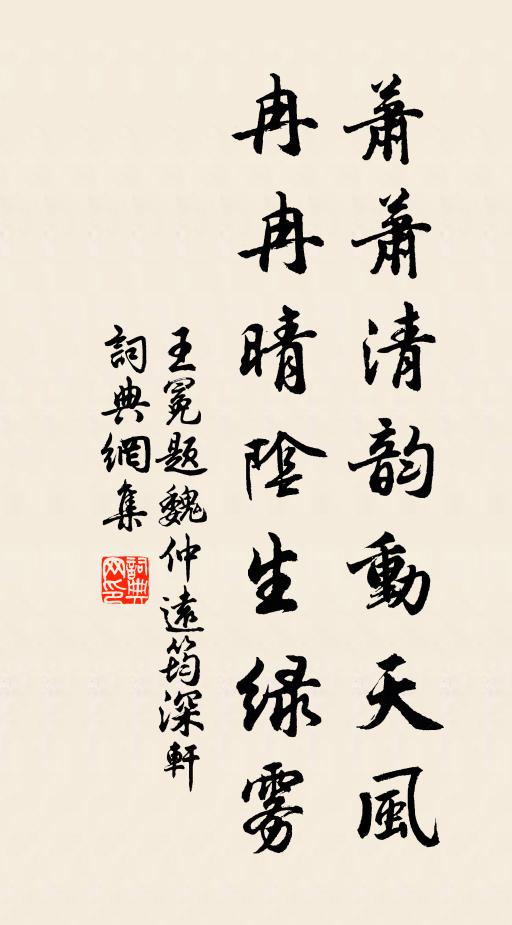 蕭蕭清韵動天風
冉冉晴陰生緑雾
王冕題魏仲遠筠深軒
詞典網集
詞典网印